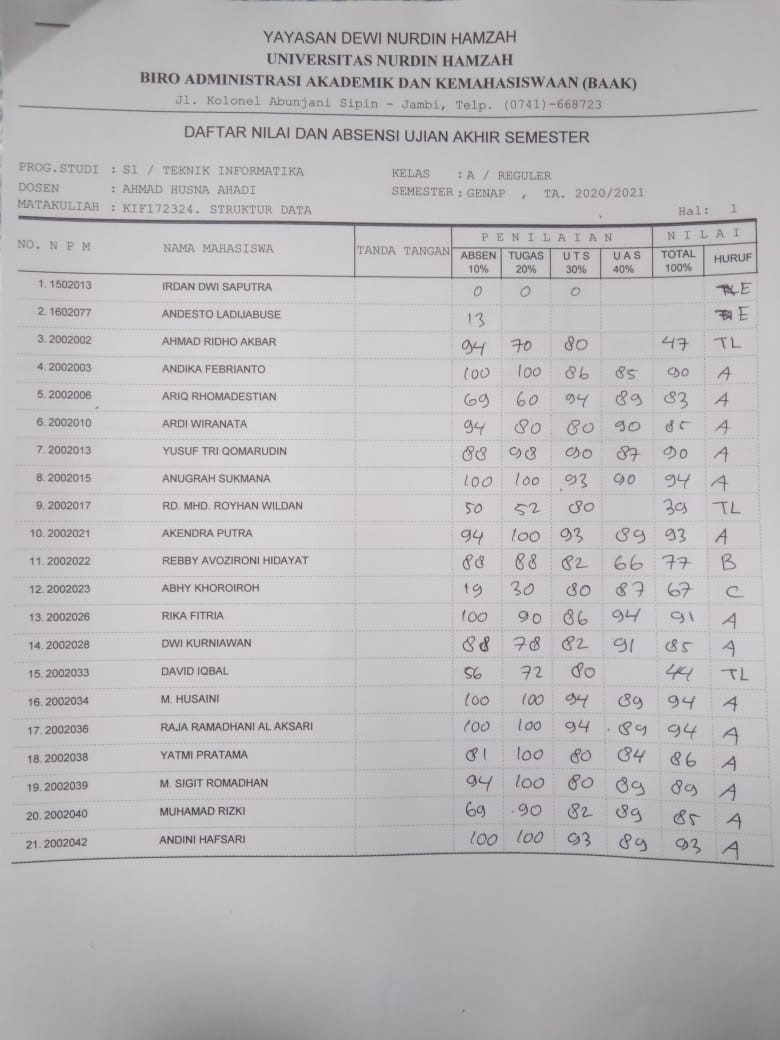 YAYASAN DEWI NURDIN HAMZAH
UNIVERSITAS NURDIN HAMZAH
BIRO ADMINISTRASI AKADEMIK DAN KEMAHASISWAAN (BAAK)
Jl. Kolonel Abunjani Sipin - Jambi, Telp. (0741)-668723
DAFTAR NILAI DAN ABSENSI UJIAN AKHIR SEMESTER
PROG.STUDI : S1 / TEKNIK INFORMATIKA KELAS : A / REGULER
DOSEN : AHMAD HUSNA AHADI SEMESTER : GENAP , TA. 2020/2021
MATAKULIAH : KIF172324. STRUKTUR DATA Hal: 1
NO. N P M NAMA MAHASISWA TANDA TANGAN P E N I L A I A N N I L A I
ABSEN 10% TUGAS 20% U T S 30% U A S 40% TOTAL 100% HURUF
1. 1502013 IRDAN DWI SAPUTRA 0 0 0 E
2. 1602077 ANDESTO LADIJABUSE 13 E
3. 2002002 AHMAD RIDHO AKBAR 94 70 80 47 TL
4. 2002003 ANDIKA FEBRIANTO 100 100 86 85 90 A
5. 2002006 ARIQ RHOMADESTIAN 69 60 94 89 83 A
6. 2002010 ARDI WIRANATA 94 80 80 90 85 A
7. 2002013 YUSUF TRI QOMARUDIN 88 98 90 87 90 A
8. 2002015 ANUGRAH SUKMANA 100 100 93 90 94 A
9. 2002017 RD. MHD. ROYHAN WILDAN 50 52 80 39 TL
10. 2002021 AKENDRA PUTRA 94 100 93 89 93 A
11. 2002022 REBBY AVOZIRONI HIDAYAT 88 88 82 66 77 B
12. 2002023 ABHY KHOROIROH 19 30 80 87 67 C
13. 2002026 RIKA FITRIA 100 90 86 94 91 A
14. 2002028 DWI KURNIAWAN 88 78 82 91 85 A
15. 2002033 DAVID IQBAL 56 72 80 44 TL
16. 2002034 M. HUSAINI 100 100 94 89 94 A
17. 2002036 RAJA RAMADHANI AL AKSARI 100 100 94 89 94 A
18. 2002038 YATMI PRATAMA 81 100 80 84 86 A
19. 2002039 M. SIGIT ROMADHAN 94 100 80 89 89 A
20. 2002040 MUHAMAD RIZKI 69 90 82 89 85 A
21. 2002042 ANDINI HAFSARI 100 100 93 89 93 A